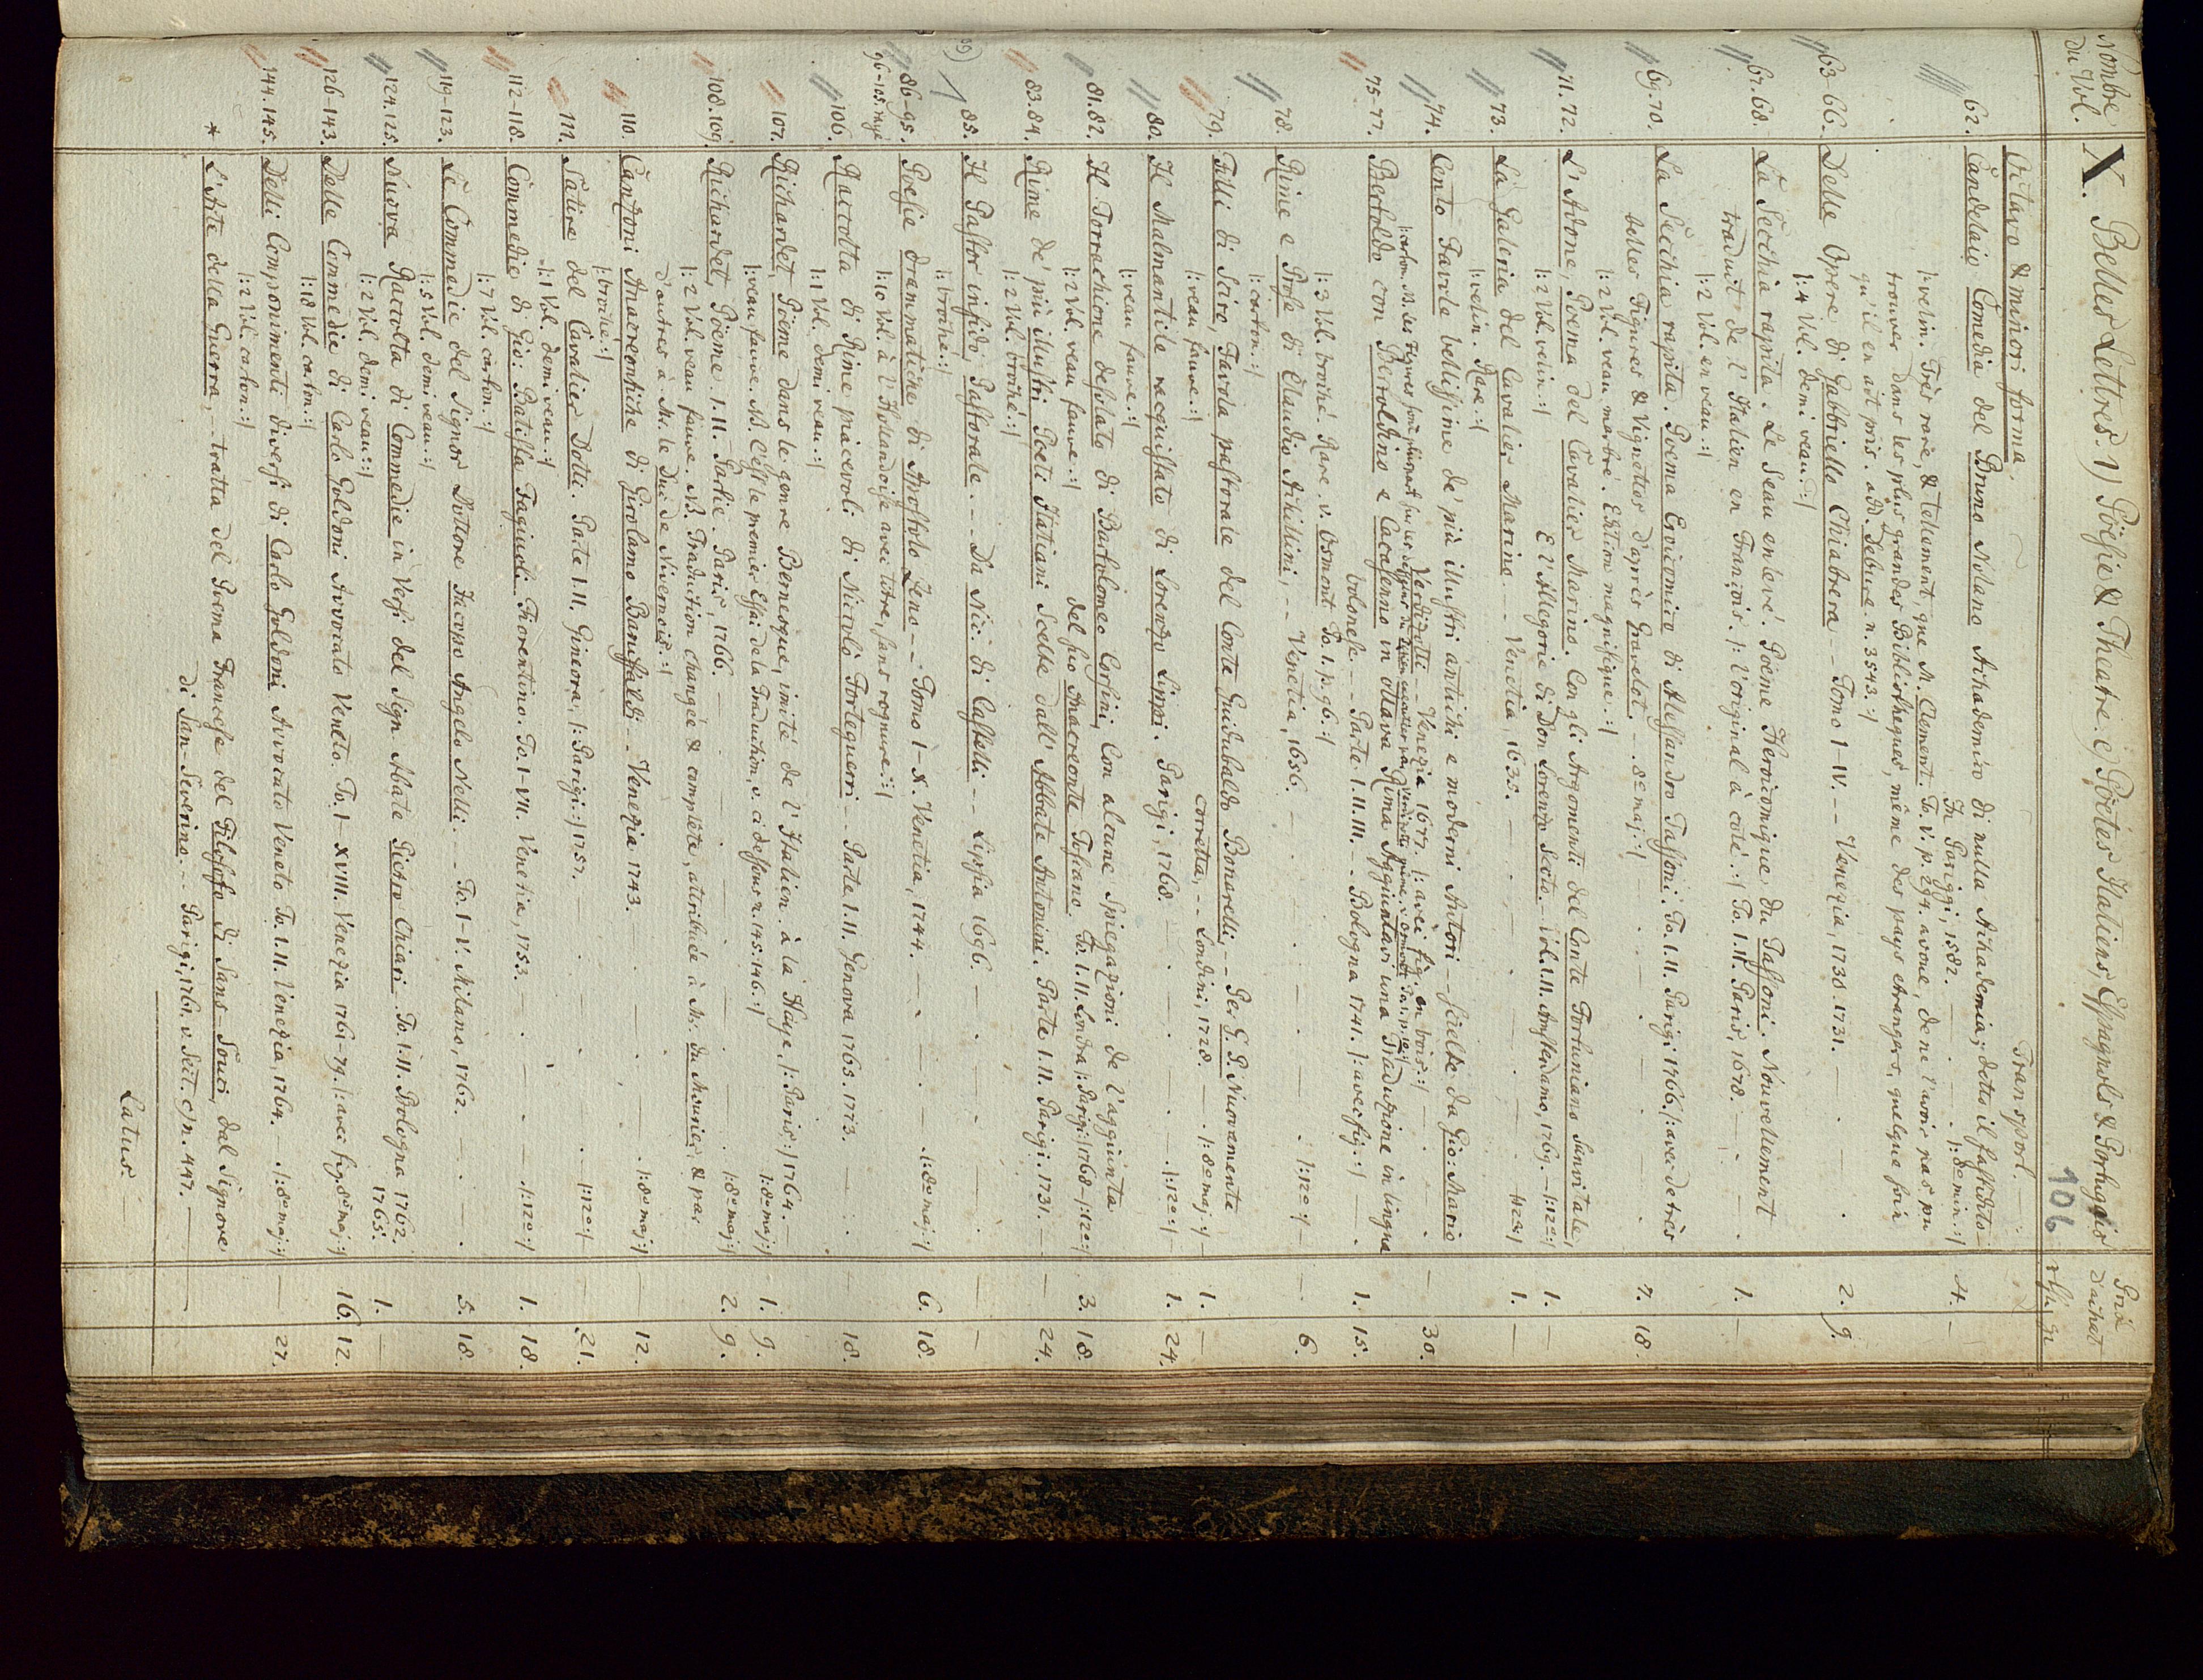 Nombre du Vol. X. Belles Lettres. 1) Pöësie & Theatre. c) Pöëtes Italiens, Espagnols & Portugais Prix d'achat
106 rh. gr
Octavo & minori forma. Transport. —
62. Candelaio Comedia del Bruno Nolano Achademico di nulla Achademia; detto il fastidito —
In Pariggi, 1582. — . — . |: 8º min. :| 4. —
|: velin. Très rare, & tellement, que M. Clement. To. V. p. 294. avoue, de ne l'avoir pas pu
trouver dans les plus grandes Bibliotheques, même des pays etrangers, quelque soin
qu'il en ait pris. add. Debure. n. 3543. :|
63-66. Delle Opere di Gabbriello Chiabrera -- Tomo I-IV. -- Venezia, 1730. 1731. — . — . 2. 9.
|: 4 Vol. demi veau. :|
67. 68. La Secchia rapita. Le Seau enlevé. Poëme Heroicomique du Tassoni. Nouvellement
traduit de l'Italien en François. |: l'original à coté. :| To. I. II. Paris, 1678. — . — . 1. —
|: 2 Vol. en veau :|
69. 70. La Secchia rapita. Poema Eroicomico di Alessandro Tassoni. To. I. II. Parigi 1766. |: avec de très
belles Figures & Vignettes d'après Gravelot. -- 8º maj. :| — . — . 7. 18.
|: 2 Vol. veau marbré. Exempl. magnifique. :|
71. 72. L'Adone, Poema del Cavalier Marino. Con gli Argomenti del Conte Fortuniano Sanvitale,
E l'Allegorie di Don Lorenzo Scoto. -- Vol. I. II. Amsterdamo, 1679. — |: 12º :| 1. —
|: 2 Vol. velin :|
73. La Galeria del Cavalier Marino -- Venetia, 1635. — . — . |: 12º :| 1. —
|: velin. Rare. :|
74. Cento Favole bellissime de' più illustri antichi e moderni Autori -- scielte da Gio: Mario
Verdizotti -- Venezia 1677. |: avec fig. en bois. :| — . — 30.
75-77. Bertoldo con Bertoldino e Cacasenno in ottava Rima Aggiuntavi una Traduzione in lingua
bolonese. -- Parte I. II. III. -- Bologna 1741. |: avec fig. :| — . 1. 15.
|: 3 Vol. broché. Rare. v. Osmont To. I. p. 96. :|
78. Rime e Prose di Claudio Achillini, -- Venetia, 1656. — . — . |: 12º :| — 6.
|: carton. :|
79. Filli di Sciro, Favola pastorale del Conte Guidubaldo Bonarelli -- Per G. P. Nuovamente
corretta, -- Londini, 1728. — . |: 8º maj. :| — 1. —
|: veau fauve. :|
80. Il Malmantile racquistato di Lorenzo Lippi. Parigi, 1768. — . — |: 12º :| — 1. 24.
|: veau fauve. :|
81. 82. Il Torrachione desolato di Bartolomeo Corsini, Con alcune Spiegazioni de l'aggiunta
del suo Anacreonte Toscano. To. I. II. Londra |: Parigi :| 1768 — |: 12º :| 3. 18.
|: 2 Vol. veau fauve. :|
83. 84. Rime de' più illustri Poeti Italiani Scelte dall' Abbate Antonini. Parte I. II. Parigi. 1731. — 24.
|: 2 Vol. broché :|
85. Il Pastor infido, Pastorale. -- Da Nic: di Castelli -- Lipsia 1696. — . — . — —
|: broché. :|
86-95. Poesie drammatiche di Apostolo Zeno -- Tomo I-X. Venetia, 1744. — . — . |: 8º maj. :| 6. 18.
|: 10 Vol. à l'Holandoise avec titre, sans rognure. :|
106. Raccolta di Rime piacevoli di Nicolò Forteguerri -- Parte I. II. Genova 1765. 1773. — . — 18.
|: 1 Vol. demi veau. :|
107. Richardet, Poëme dans le genre Bernesque, imité de l'Italien. à la Haye, |: Paris :| 1764. —
|: veau fauve. NB. C'est le premier Essai de la Traduction, v. ci dessous n. 145. 146. :| |: 8º maj. :| 1. 9.
108. 109. Richardet, Poëme. I. II. Partie. Paris, 1766. — . — . |: 8º maj. :| 2. 9.
|: 2 Vol. veau fauve. NB. Traduction changée & complète, attribuée à Mr. du Mourier & par
d'autres à Mr. le Duc de Nivernois. :|
110. Canzoni Anacreontiche di Girolamo Baruffaldi -- Venezia 1743. — . — . |: 8º maj. :| — 12.
|: broché :|
111. Satire del Cavalier Dotti. Parte I. II. Ginevra, |: Parigi :| 1757. — . |: 12º :| — 21.
|: 1 Vol. demi veau. :|
112-118. Commedie di Gio: Batista Fagiuoli Fiorentino. To. I-VII. Venetia, 1753. — . — |: 12º :| 1. 18.
|: 7 Vol. carton. :|
119-123. Le Commedie del Signor Dottore Jacopo Angelo Nelli. -- To. I-V. Milano, 1762. — . — . 5. 18.
|: 5 Vol. demi veau. :|
124. 125. Nuova Raccolta di Commedie in Versi del Sign. Abate Pietro Chiari. To. I. II. Bologna 1762
1763. 1. —
|: 2 Vol. demi veau. :|
126-143. Delle Commedie di Carlo Goldoni Avvocato Veneto. To. I-XVIII. Venezia 1761-79. |: avec fig. 8º maj. :| 16. 12.
|: 18 Vol. carton :|
144. 145. Delli Componimenti diversi di Carlo Goldoni Avvocato Veneto To. I. II. Venezia, 1764. — |: 8º maj. :| — 27.
|: 2 Vol. carton. :|
* L'Arte della Guerra, tratta del Poema Francese del Filosofo di Sans-Souci, dal Signore
di San-Severino -- Parigi, 1761. v. Sect. c) n. 447. —
Latus. —